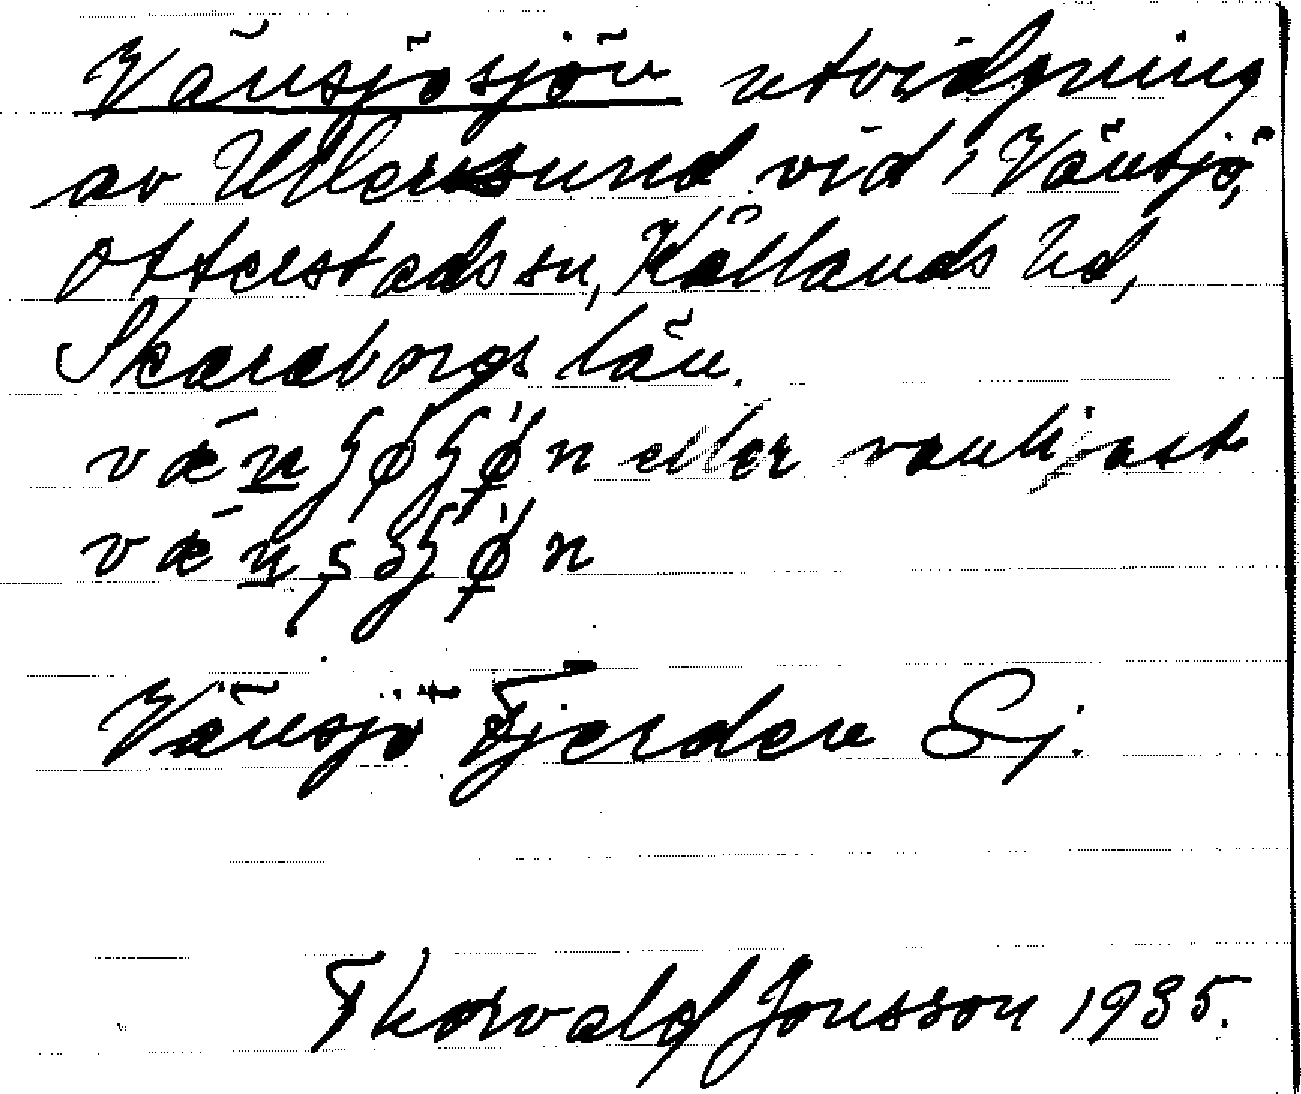 Vänsjösjön utvidgning
av Ullersund vid 1 Vänsjö,
Otterstads sn, Kållands hd,
Skaraborgs län.
eller vanligast
Vänsjö Fjerden Sj.
Thorvald Jonsson 1935.